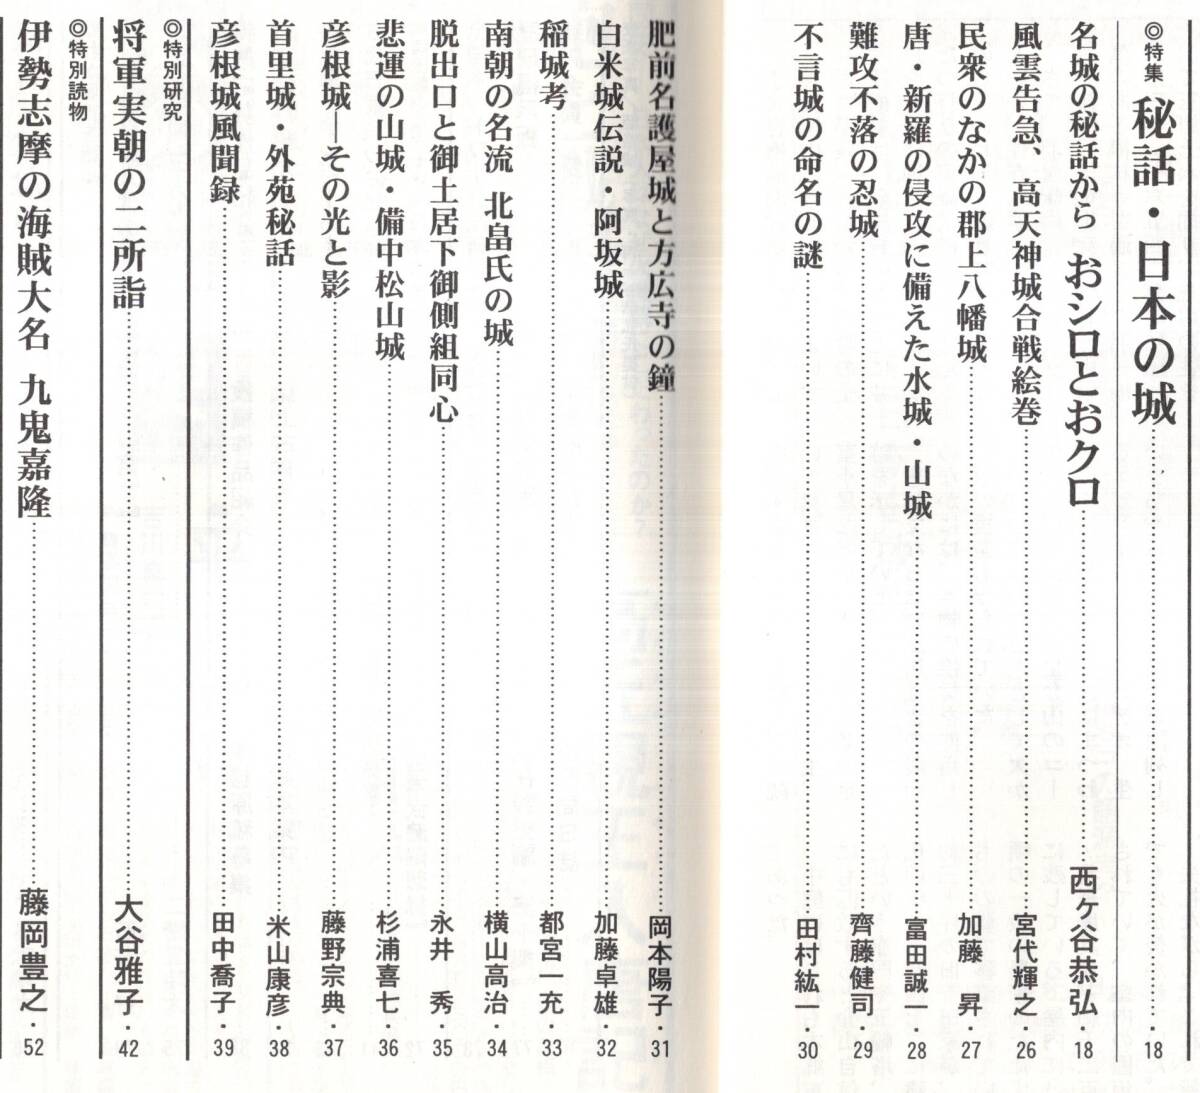 ◎特集 秘話・日本の城・18
名城の秘話から おシロとおクロ 西ケ谷恭弘・18
風雲告急 高天神城合戦絵巻 宮代輝之・26
民衆のなかの郡上八幡城 加藤 昇・27
唐・新羅の侵攻に備えた水城・山城 富田誠一・28
難攻不落の忍城 齊藤健司・29
不言城の命名の謎 田村紘一・30
肥前名護屋城と方広寺の鐘 岡本陽子・31
白米城伝説・阿坂城 加藤卓雄・32
稲城考 都宮一充・33
南朝の名流 北畠氏の城 横山高治・34
脱出口と御土居下御側組同心 永井 秀・35
悲運の山城・備中松山城 杉浦喜七・36
彦根城―その光と影 藤野宗典・37
首里城・外苑秘話 米山康彦・38
彦根城風聞録 田中喬子・39
◎特別研究
将軍実朝の二所詣 大谷雅子・42
◎特別読物
伊勢志摩の海賊大名 九鬼嘉隆 藤岡豊之・52